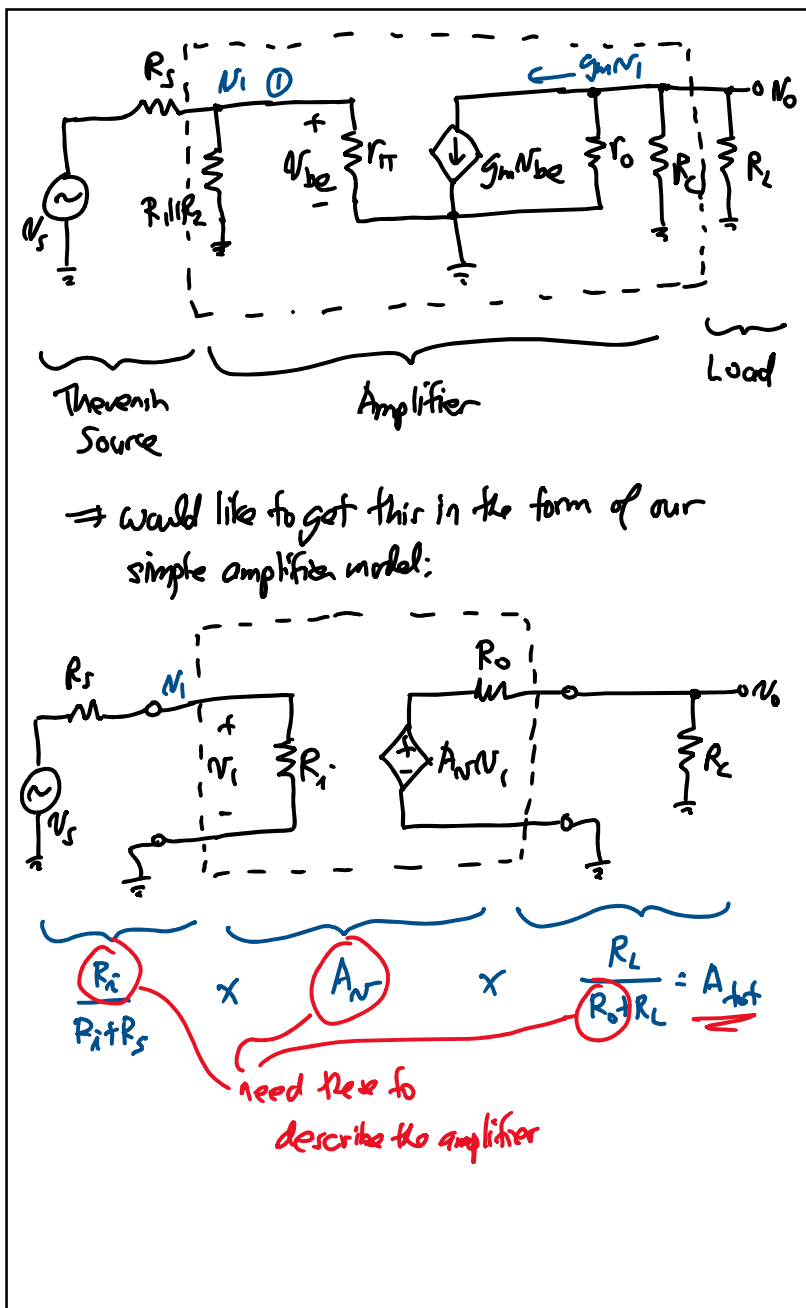 Rs
v1 ①
← gmv1
vo
+
vbe
-
rπ
gmvbe
ro
Rc
RL
R1||R2
vs
Thevenin
Source
Amplifier
Load
⇒ would like to get this in the form of our
simple amplifier model:
Rs
v1
Ro
vo
+
v1
-
Ri
+
-
Avv1
RL
vs
Ri / Ri+Rs × Av × RL / Ro+RL = Atot
need these to
describe the amplifier